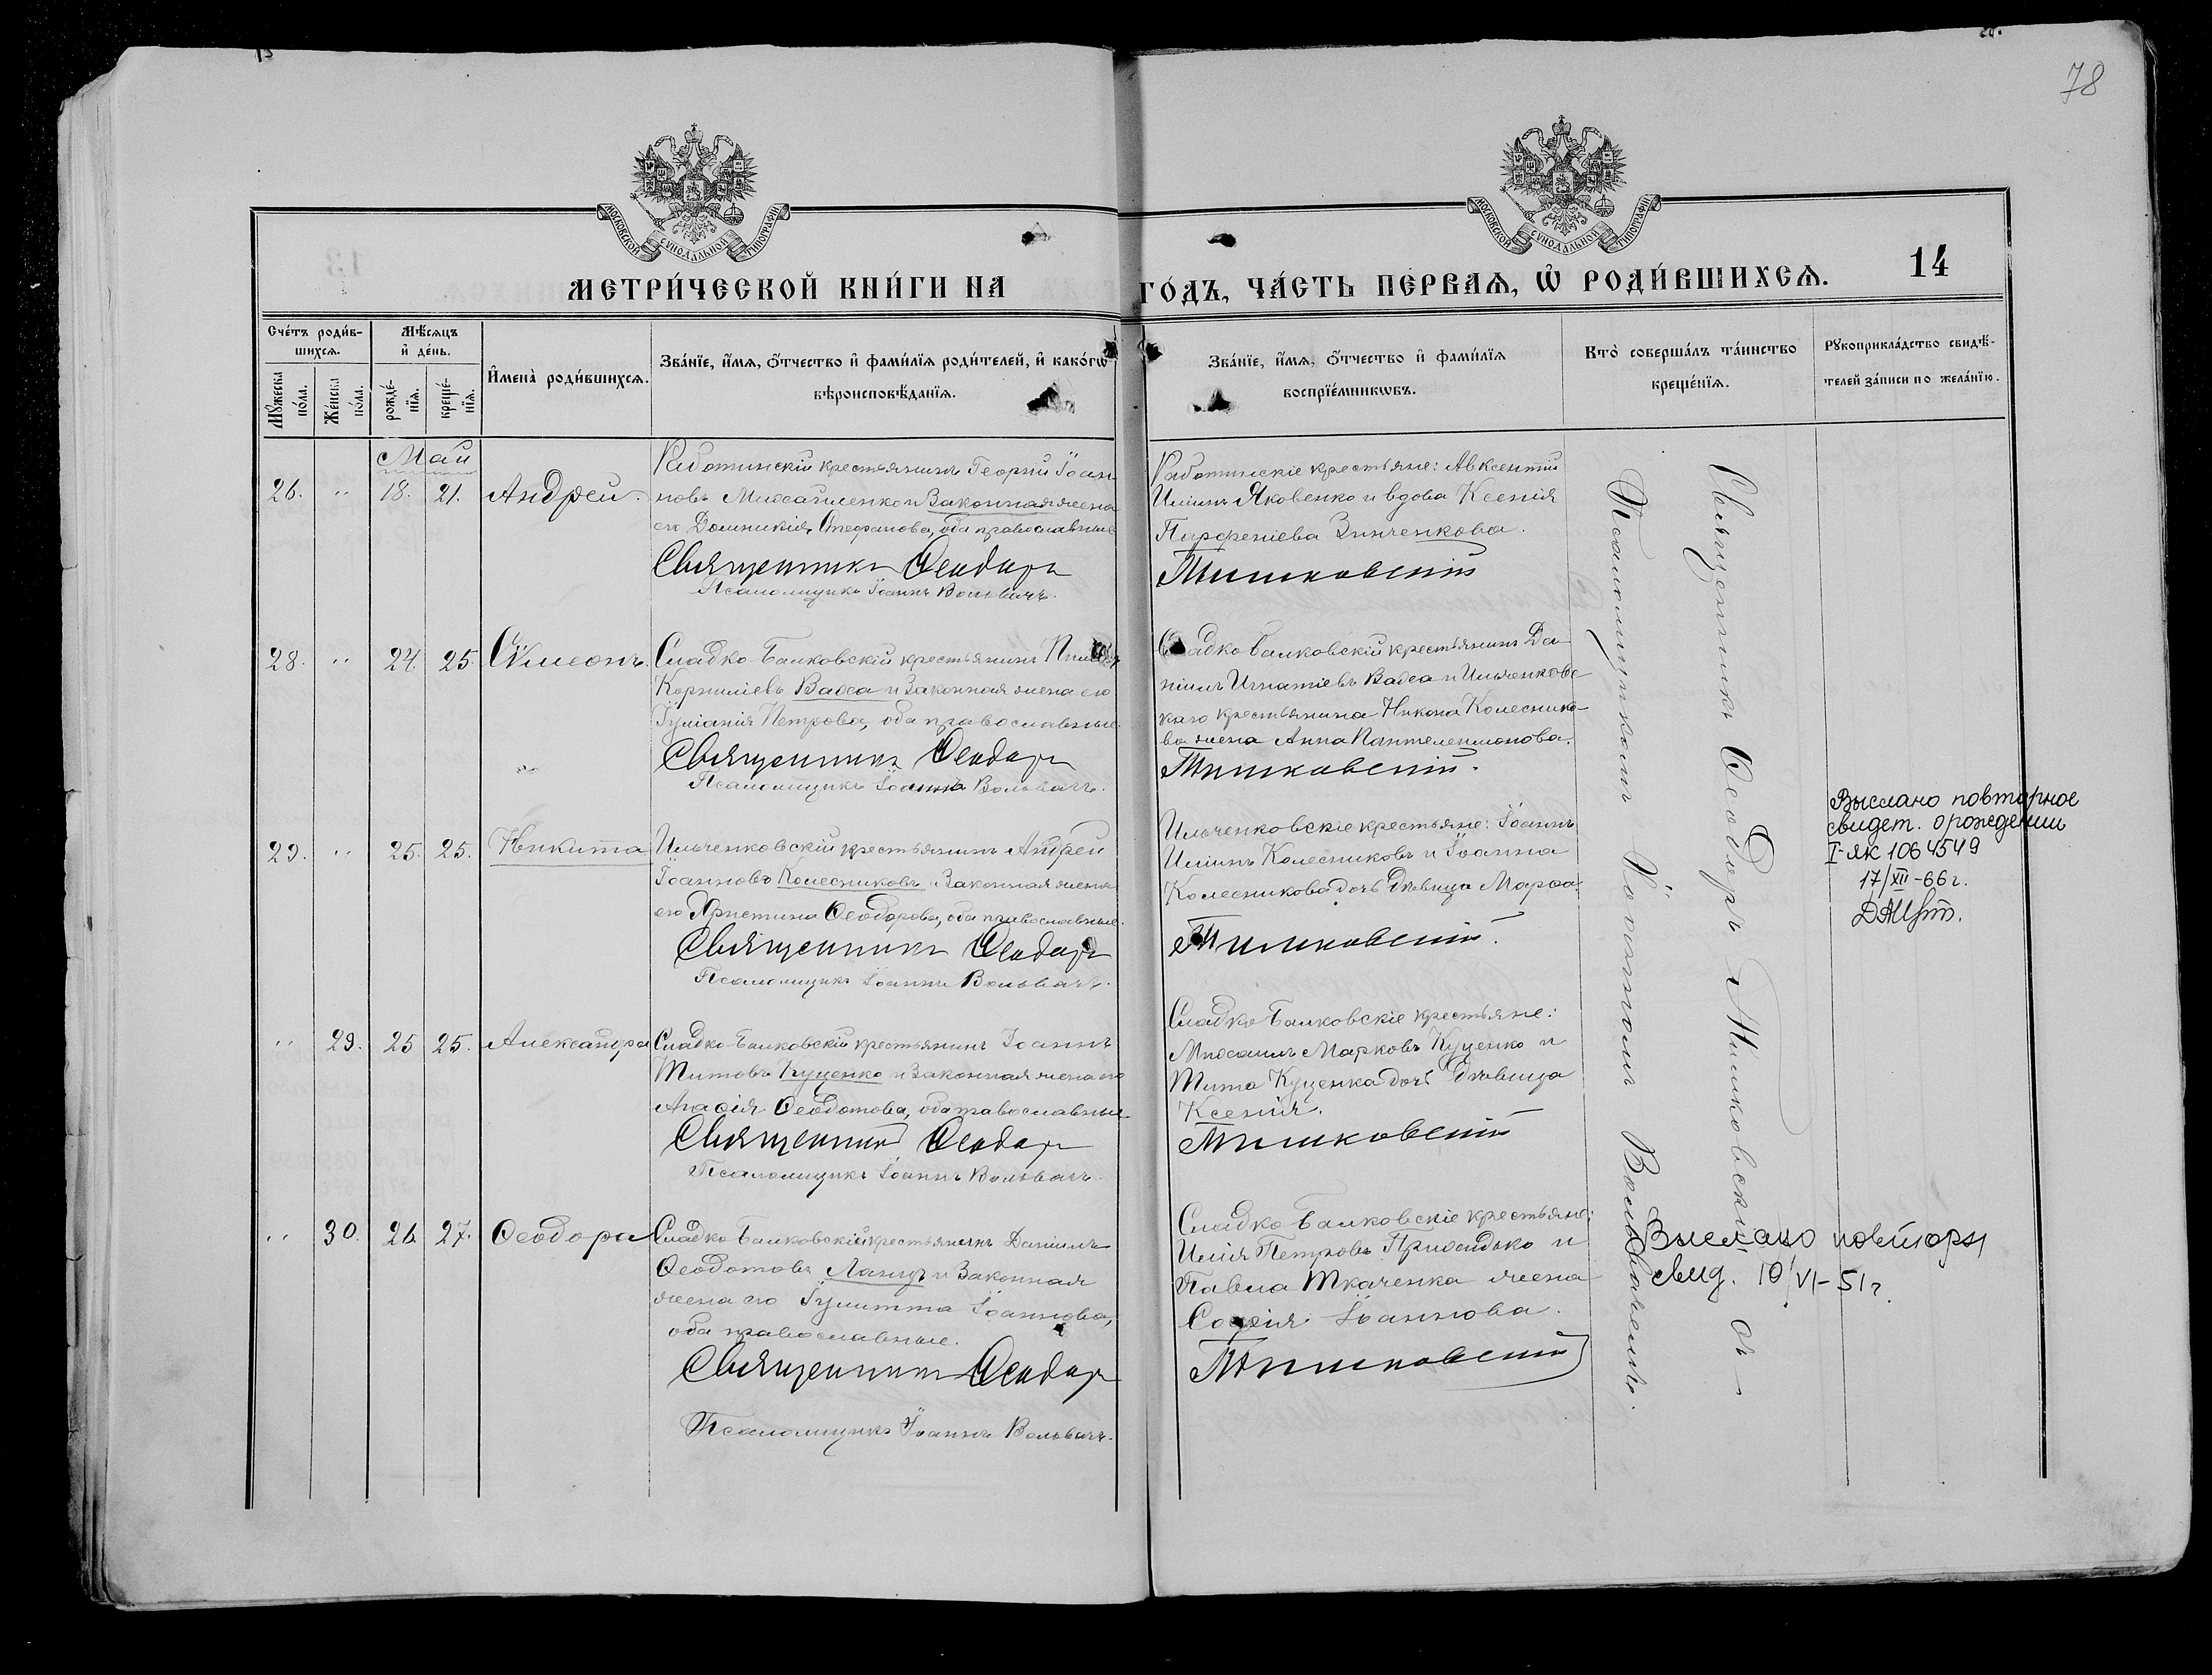 78
МОСКОВСКОЙ СѴНОДАЛЬНОЙ ТИПОГРАФІИ
МОСКОВСКОЙ СѴНОДАЛЬНОЙ ТИПОГРАФІИ
МЕТРИ́ЧЕСКОЙ КНИ́ГИ НА ГО́ДЪ, ЧА́СТЬ ПЕ́РВАѦ, Ѽ РОДИ́ВШИХСѦ.
14
Сче́тъ роди́в-
шихсѧ.
Мꙋжеска по́ла.
Же́нска по́ла.
Мѣ́сѧцъ
и҆ де́нь.
рожде́-
нїѧ.
креще́-
нїѧ.
И҆мена̀ роди́вшихсѧ.
Зва́нїе, и҆́мѧ, ѻ҆́тчество и҆ фами́лїѧ роди́телей, и҆ како́гѡ
вѣроисповѣ́данїѧ.
Зва́нїе, и҆́мѧ, ѻ҆́тчество и҆ фами́лїѧ
воспрїе́мникѡвъ.
Кто̀ соверша́лъ та́инство
креще́нїѧ.
Рꙋкоприкла́дство свидѣ́-
телей за́писи по жела́нїю.
Май
26. " 18. 21. Андрей.
Работинскій крестьянинъ Георгій Іоан
новъ Михайленко и Законная жена
его Домникія Стефанова, оба православные
Священникъ Ѳеодоръ
Псаломщикъ Іоаннъ Вольвачъ.
Работинскіе крестьяне: Авксентій
Иліинъ Яковенко и вдова Ксенія
Парфеніева Зинченкова.
Тишковскій
28. " 24. 25. Сѵмеонъ.
Сладко-Балковскій крестьянинъ
Корниліевъ Вакса и Законная жена его
Іуліанія Петрова, оба православные.
Священникъ Ѳеодоръ
Псаломщикъ Іоаннъ Вольвачъ.
Сладко-Балковскій крестьянинъ Да-
ніилъ Игнатіевъ Вакса и Ильченковс
каго крестьянина Никона Колеснико-
ва жена Анна Пантелеимонова.
Тишковскій.
29. " 25. 25. Никита
Ильченковскій крестьянинъ Андрей
Іоанновъ Колесниковъ и Законная жена
его Христина Ѳеодорова, оба православные.
Священникъ Ѳеодоръ
Псаломщикъ Іоаннъ Вольвачъ.
Ильченковскіе крестьяне: Іоаннъ
Иліинъ Колесниковъ и Іоанна
Колесникова дочь Дѣвица Марѳа.
Тишковскій.
Выслано повторное
свидет. о рождении
I-ЯК 1064549
17/XII-66г.
" 29. 25 25. Александра
Сладко-Балковскій крестьянинъ Іоаннъ
Титовъ Куценко и Законная жена его
Агаѳія Ѳеодотова, оба православные
Священникъ Ѳеодоръ
Псаломщикъ Іоаннъ Вольвачъ.
Сладко-Балковскіе крестьяне:
Михаилъ Марковъ Куценко и
Тита Куценка дочь Дѣвица
Ксенія.
Тишковскій
" 30. 26. 27. Ѳеодора
Сладко-Балковскій крестьянинъ Даніилъ
Ѳеодотовъ и Законная
жена его Іулитта Іоаннова,
оба православные.
Священникъ Ѳеодоръ
Псаломщикъ Іоаннъ Вольвачъ.
Сладко-Балковскіе крестьяне:
Илія Петровъ Приходько и
Павла Ткаченка жена
Софія Іоаннова.
Тишковскій
Священникъ Ѳеодоръ Тишковскій съ
Псаломщикомъ Іоанномъ Вольвачемъ.
Выслано повторн
свид. 10/VI-51г.